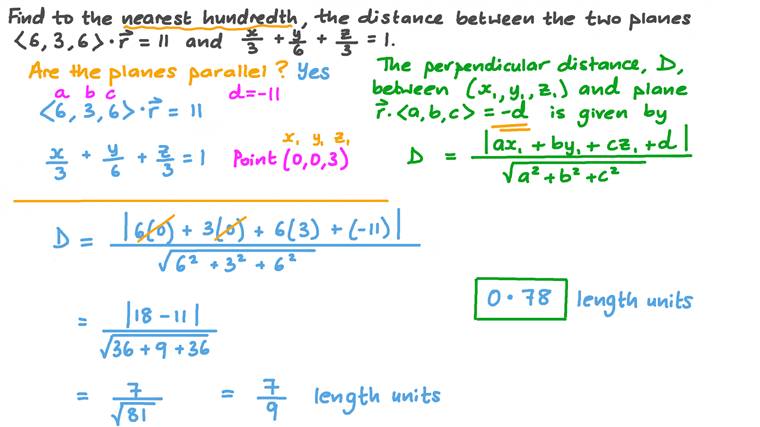 Find to the nearest hundredth, the distance between the two planes
⟨6, 3, 6⟩ · r⃗ = 11 and x/3 + y/6 + z/3 = 1.
Are the planes parallel? Yes
a b c d = -11
⟨6, 3, 6⟩ · r⃗ = 11
x₁ y₁ z₁
x/3 + y/6 + z/3 = 1 Point (0, 0, 3)
The perpendicular distance, D,
between (x₁, y₁, z₁) and plane
r⃗ · ⟨a, b, c⟩ = -d is given by
D = |ax₁ + by₁ + cz₁ + d| / √(a² + b² + c²)
D = |6(0) + 3(0) + 6(3) + (-11)| / √(6² + 3² + 6²)
= |18 - 11| / √(36 + 9 + 36)
= 7/√81 = 7/9 length units
0·78 length units